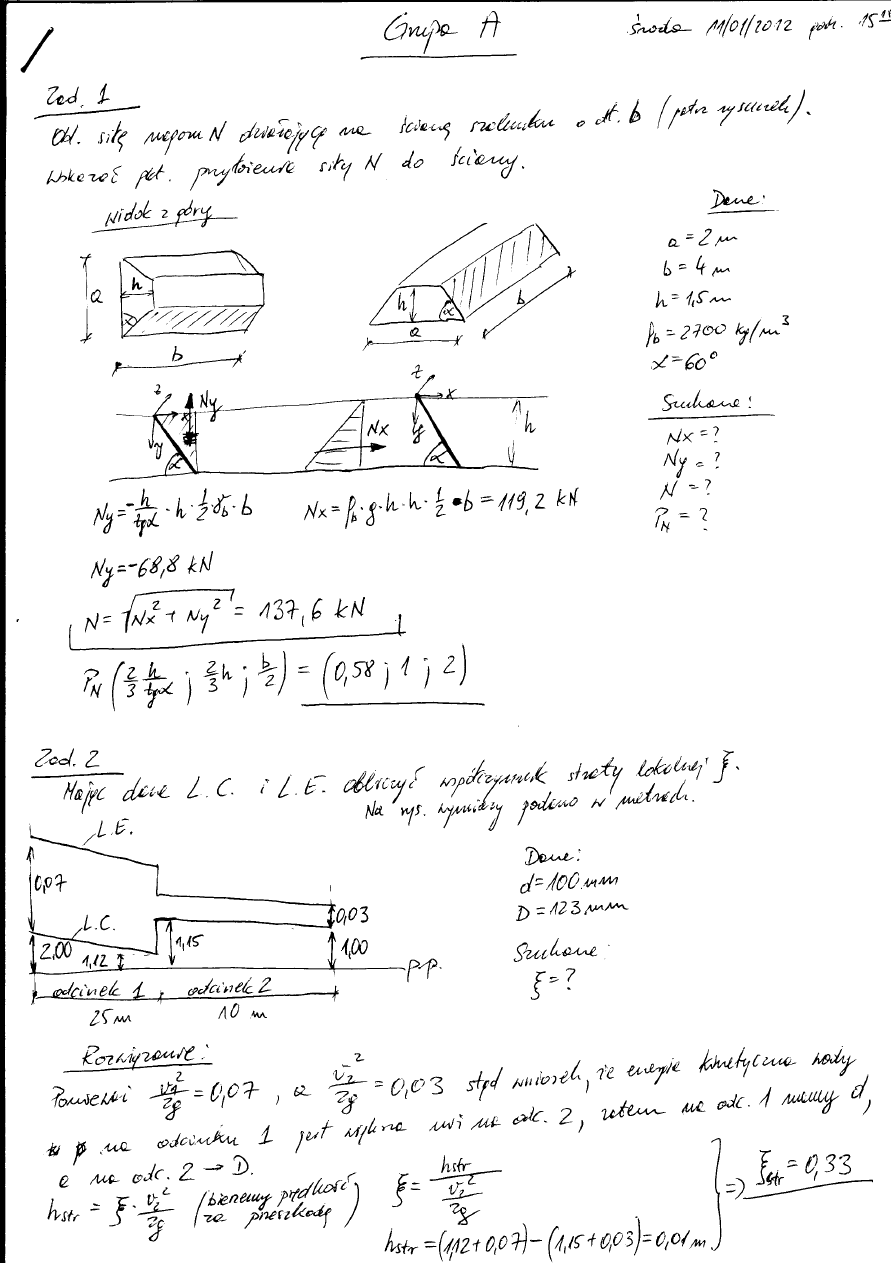 Grupa A
środa 11/01/2012 godz. 15
Zad. 1
Obl. siłę naporu N działającą na ścianę szalunku o dł. b (patrz rysunek).
Wskazać pkt. przyłożenia siły N do ściany.
Widok z góry
Dane:
a = 2 m
b = 4 m
h = 1,5 m
ρb = 2700 kg/m³
α = 60°
a
h
α
b
h
α
a
b
Szukane:
Nx = ?
Ny = ?
N = ?
PN = ?
z
x
y
Ny
α
Nx
z
x
y
α
h
Ny = -h/tgα · h · 1/2 γb · b
Nx = ρb · g · h · h · 1/2 · b = 119,2 kN
Ny = -68,8 kN
N = √(Nx² + Ny²) = 137,6 kN
PN (2/3 h/tgα ; 2/3 h ; b/2) = (0,58 ; 1 ; 2)
Zad. 2
Mając dane L.C. i L.E. obliczyć współczynnik straty lokalnej ξ.
Na rys. wymiary podano w metrach.
L.E.
0,07
L.C.
2,00
1,12
1,15
0,03
1,00
p.p.
odcinek 1
odcinek 2
25 m
10 m
Dane:
d = 100 mm
D = 123 mm
Szukane:
ξ = ?
Rozwiązanie:
Ponieważ v1²/2g = 0,07 , a v2²/2g = 0,03 stąd wniosek, że energia kinetyczna wody
na odcinku 1 jest większa niż na odc. 2, zatem na odc. 1 mamy d,
a na odc. 2 → D.
hstr = ξ · v2²/2g (bierzemy prędkość za przeszkodą)
ξ = hstr / v2²/2g
hstr = (1,12 + 0,07) - (1,15 + 0,03) = 0,01 m
=> ξstr = 0,33